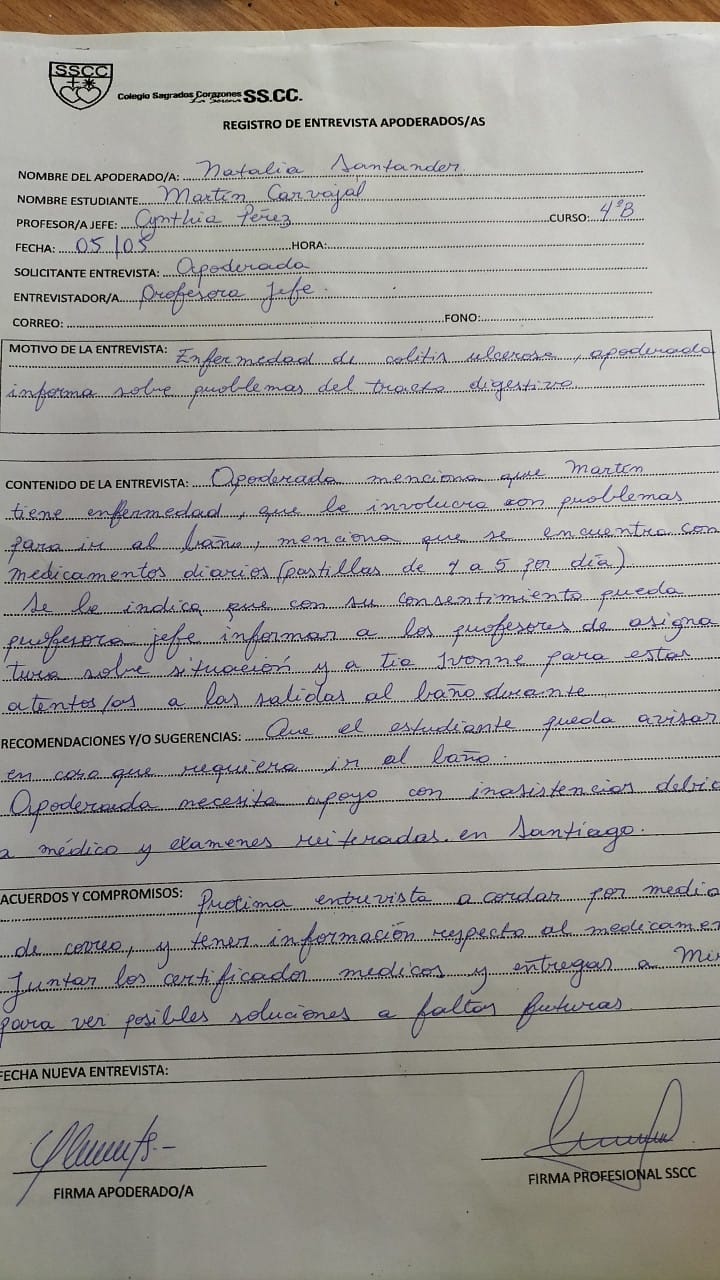 SSCC
Colegio Sagrados Corazones SS.CC.
La Serena
REGISTRO DE ENTREVISTA APODERADOS/AS
NOMBRE DEL APODERADO/A: Natalia Santander
NOMBRE ESTUDIANTE Martín Carvajal
PROFESOR/A JEFE: Cynthia Pérez CURSO: 4°B
FECHA: 05/05 HORA:
SOLICITANTE ENTREVISTA: Apoderada
ENTREVISTADOR/A Profesora Jefe.
CORREO: FONO:
MOTIVO DE LA ENTREVISTA: Enfermedad de colitis ulcerosa, apoderada
informa sobre problemas del tracto digestivo.
CONTENIDO DE LA ENTREVISTA: Apoderada menciona que Martín
tiene enfermedad, que le involucra con problemas
para ir al baño, menciona que se encuentra con
medicamentos diarios (pastillas de 4 a 5 por día)
Se le indica que con su consentimiento pueda
profesora jefe informar a los profesores de asigna
tura sobre situación y a tia Ivonne para estar
atentos/as a las salidas al baño durante
RECOMENDACIONES Y/O SUGERENCIAS: Que el estudiante pueda avisar
en caso que requiera ir al baño.
Apoderada necesita apoyo con inasistencias debido
a médico y examenes reiteradas en Santiago.
ACUERDOS Y COMPROMISOS: Proxima entrevista acordar por medio
de correo, y tener información respecto al medicamen
Juntar los certificados medicos y entregas a Mi
para ver posibles soluciones a faltas futuras
FECHA NUEVA ENTREVISTA:
FIRMA APODERADO/A
FIRMA PROFESIONAL SSCC